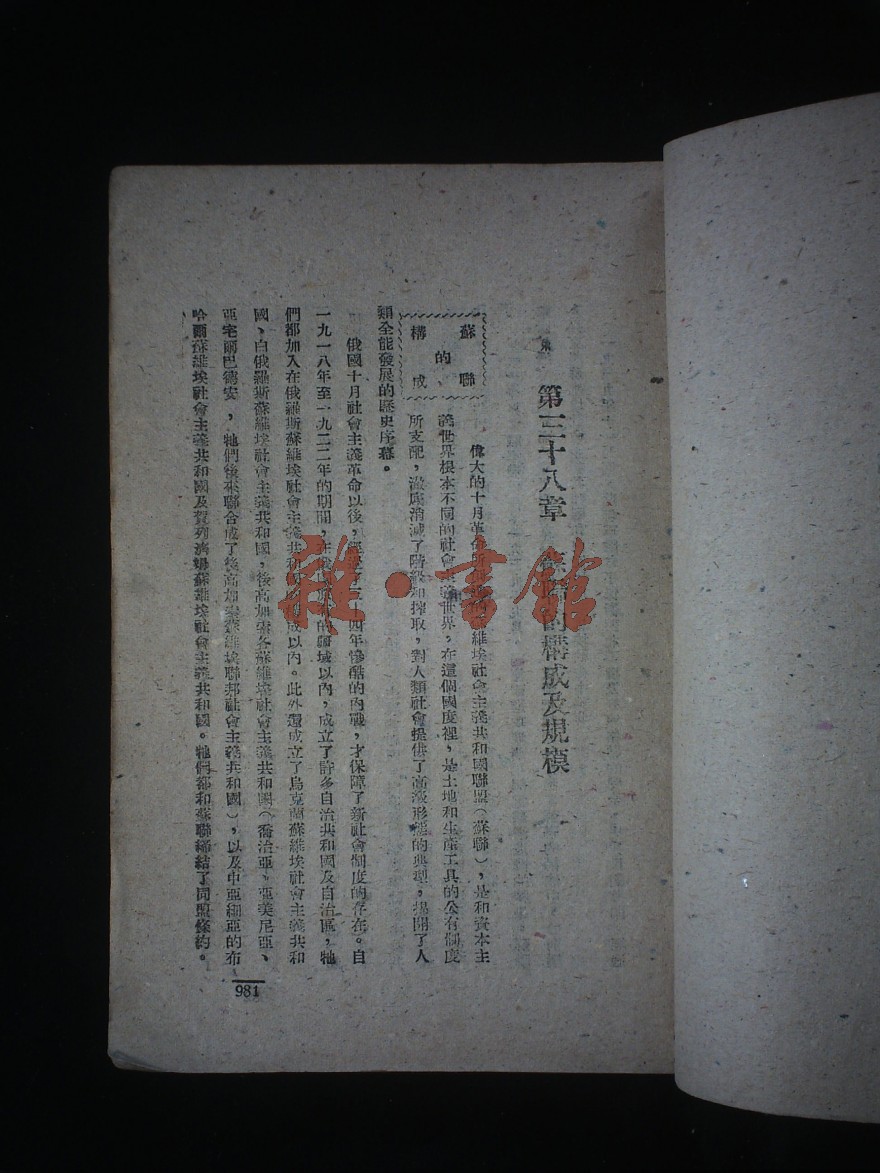 第三十八章 的構成及規模
蘇聯
的
構成
偉大的十月革命 維埃社會主義共和國聯盟(蘇聯),是和資本主
義世界根本不同的社會主義世界,在這個國度裡,是土地和生產工具的公有制度
所支配,澈底消滅了階級和搾取,對人類社會提供了高級形態的典型,揭開了人
類全能發展的歷史序幕。
俄國十月社會主義革命以後, 四年慘酷的內戰,才保障了新社會制度的存在。自
一九一八年至一九二二年的期間,在 的疆域以內,成立了許多自治共和國及自治區,牠
們都加入在俄羅斯蘇維埃社會主義共和 成以內。此外還成立了烏克蘭蘇維埃社會主義共和
國、白俄羅斯蘇維埃社會主義共和國,後高加索各蘇維埃社會主義共和國(喬治亞、亞美尼亞、
亞宅爾巴德安,牠們後來聯合成了後高加索蘇維埃聯邦社會主義共和國),以及中亞細亞的布
哈爾蘇維埃社會主義共和國及賀列演姆蘇維埃社會主義共和國。牠們都和蘇聯締結了同盟條約。
981
雜·書館